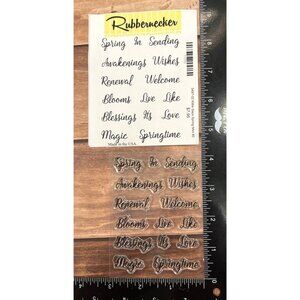 Rubbernecker
Spring In Sending
Awakenings Wishes
Renewal Welcome
Blooms Live Like
Blessings It's Love
Magic Springtime
Made in the USA
$7.50
Spring In Sending
Awakenings Wishes
Renewal Welcome
Blooms Live Like
Blessings It's Love
Magic Springtime